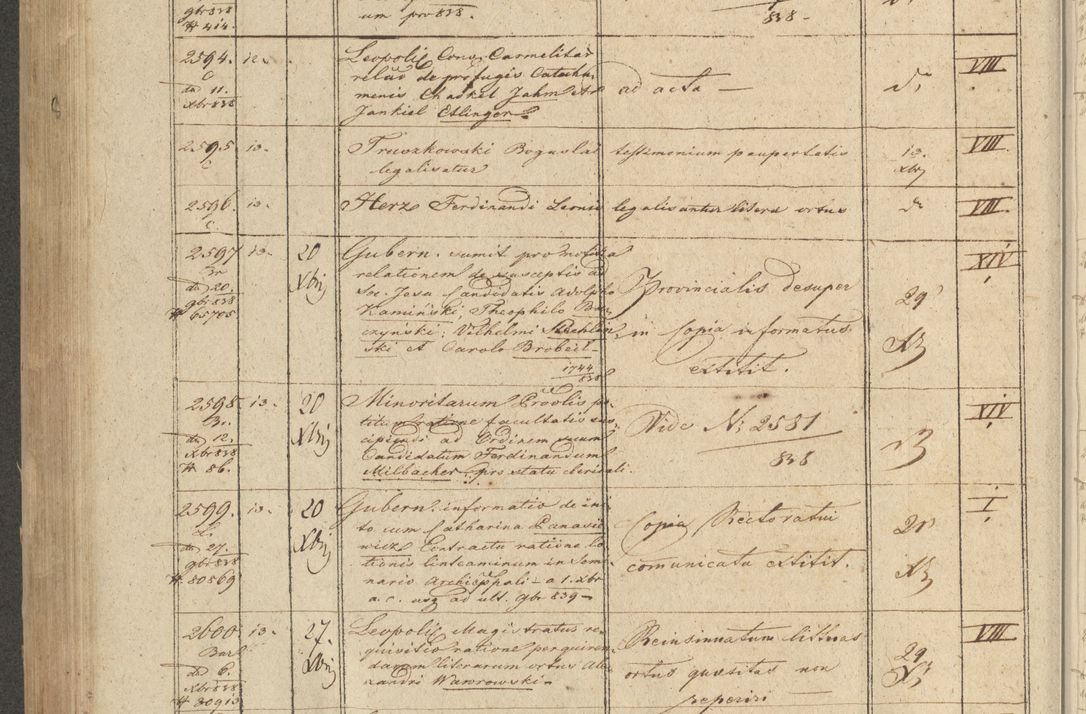 gbr 838
# 414.
um pro 838.
838 –
2594. 12.
C
dd 11.
Xbr 838
Leopolis Conv. Carmelitar
relatio de profugis Catechu
menis Chaskel Jahm et
Jankiel Etlinger
ad acta —
VIII
2595 13.
C
Truszkowski Boguslai
legalisatur
testimonium paupertatis
13
Xbr
VIII
2596. 13.
C.
Herz Ferdinandi Leonis
legalisantur litera ortus
VIII
2597 13.
dd 20.
gbr 838
# 65705
20
Xbrij
Gubern. sumit pro notitia
relationem de susceptis ad
Soc. Jesu Candidatis Adolpho
Kamiński, Theophilo
czyński; Vilhelmi
ski et Carolo Brobeil –
1744
838
Provincialis desuper
in Copia informatus
extitit.
29
XIV
2598. 13.
dd 12.
Xbr 838
# 86.
20
Xbrij
Minoritarum Provlis pe-
titum ratione facultatis sus-
cipiendi ad Ordinem suum
Candidatum Ferdinandum
Milbacher pro statu clericali.
Vide N; 2581
838
XIV
2599. 13.
dd 27.
gbr 838
# 80569
20
Xbrij
Gubern. informatio de ini-
to cum Catharina Panasie
wicz Contractu ratione lo-
tionis linteaminum in Sem-
nario Archieppali – a 1. Xbr
a. c. usq ad ult. gbr 839 –
Copia Rectoratui
comunicata extitit.
I
2600 13.
dd 6.
Xbr 838
# 30913
27.
Xbrij
Leopolis Magistratus re-
quisitio ratione perquiren-
darum literarum ortus Ale-
xandri Wawrowski –
Reinsinuatum litteras
ortus quæsitas non
reperiri —
29
VIII